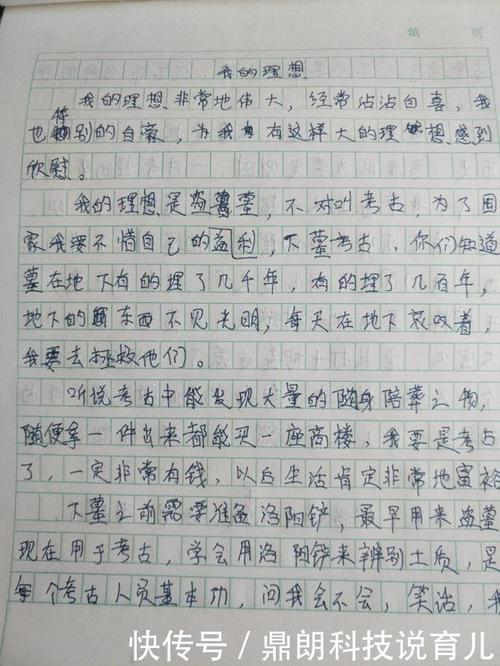 第 页
我的理想
我的理想非常地伟大，经常沾沾自喜，我
也特别的自豪，为我有这样大的理想感到
欣慰。
我的理想是盗墓，不对叫考古，为了国
家我要不惜自己的益利，下墓考古，你们知道
墓在地下有的埋了几千年，有的埋了几百年，
地下的东西不见光明，每天在地下哀叹着，
我要去拯救他们。
听说考古中能发现大量的随身陪葬之物，
随便拿一件出来都能买一座高楼，我要是考古
了，一定非常有钱，以后生活肯定非常地富裕
下墓之前需要准备洛阳铲，最早用来盗墓
现在用于考古，学会用洛阳铲来辨别土质，是
每个考古人员基本功，问我会不会，笑话，我
快传号/鼎朗科技说育儿